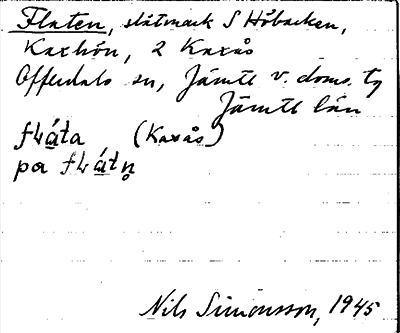 Flaten, slåtmark S Höbacken,
Kaxhön, 2 Kaxås
Offerdals sn, Jämtl v. doms. tg
Jämtl län
fɫa̲ta (Kaxås)
pa fɫa̲tn̥
Nils Simonsson, 1945